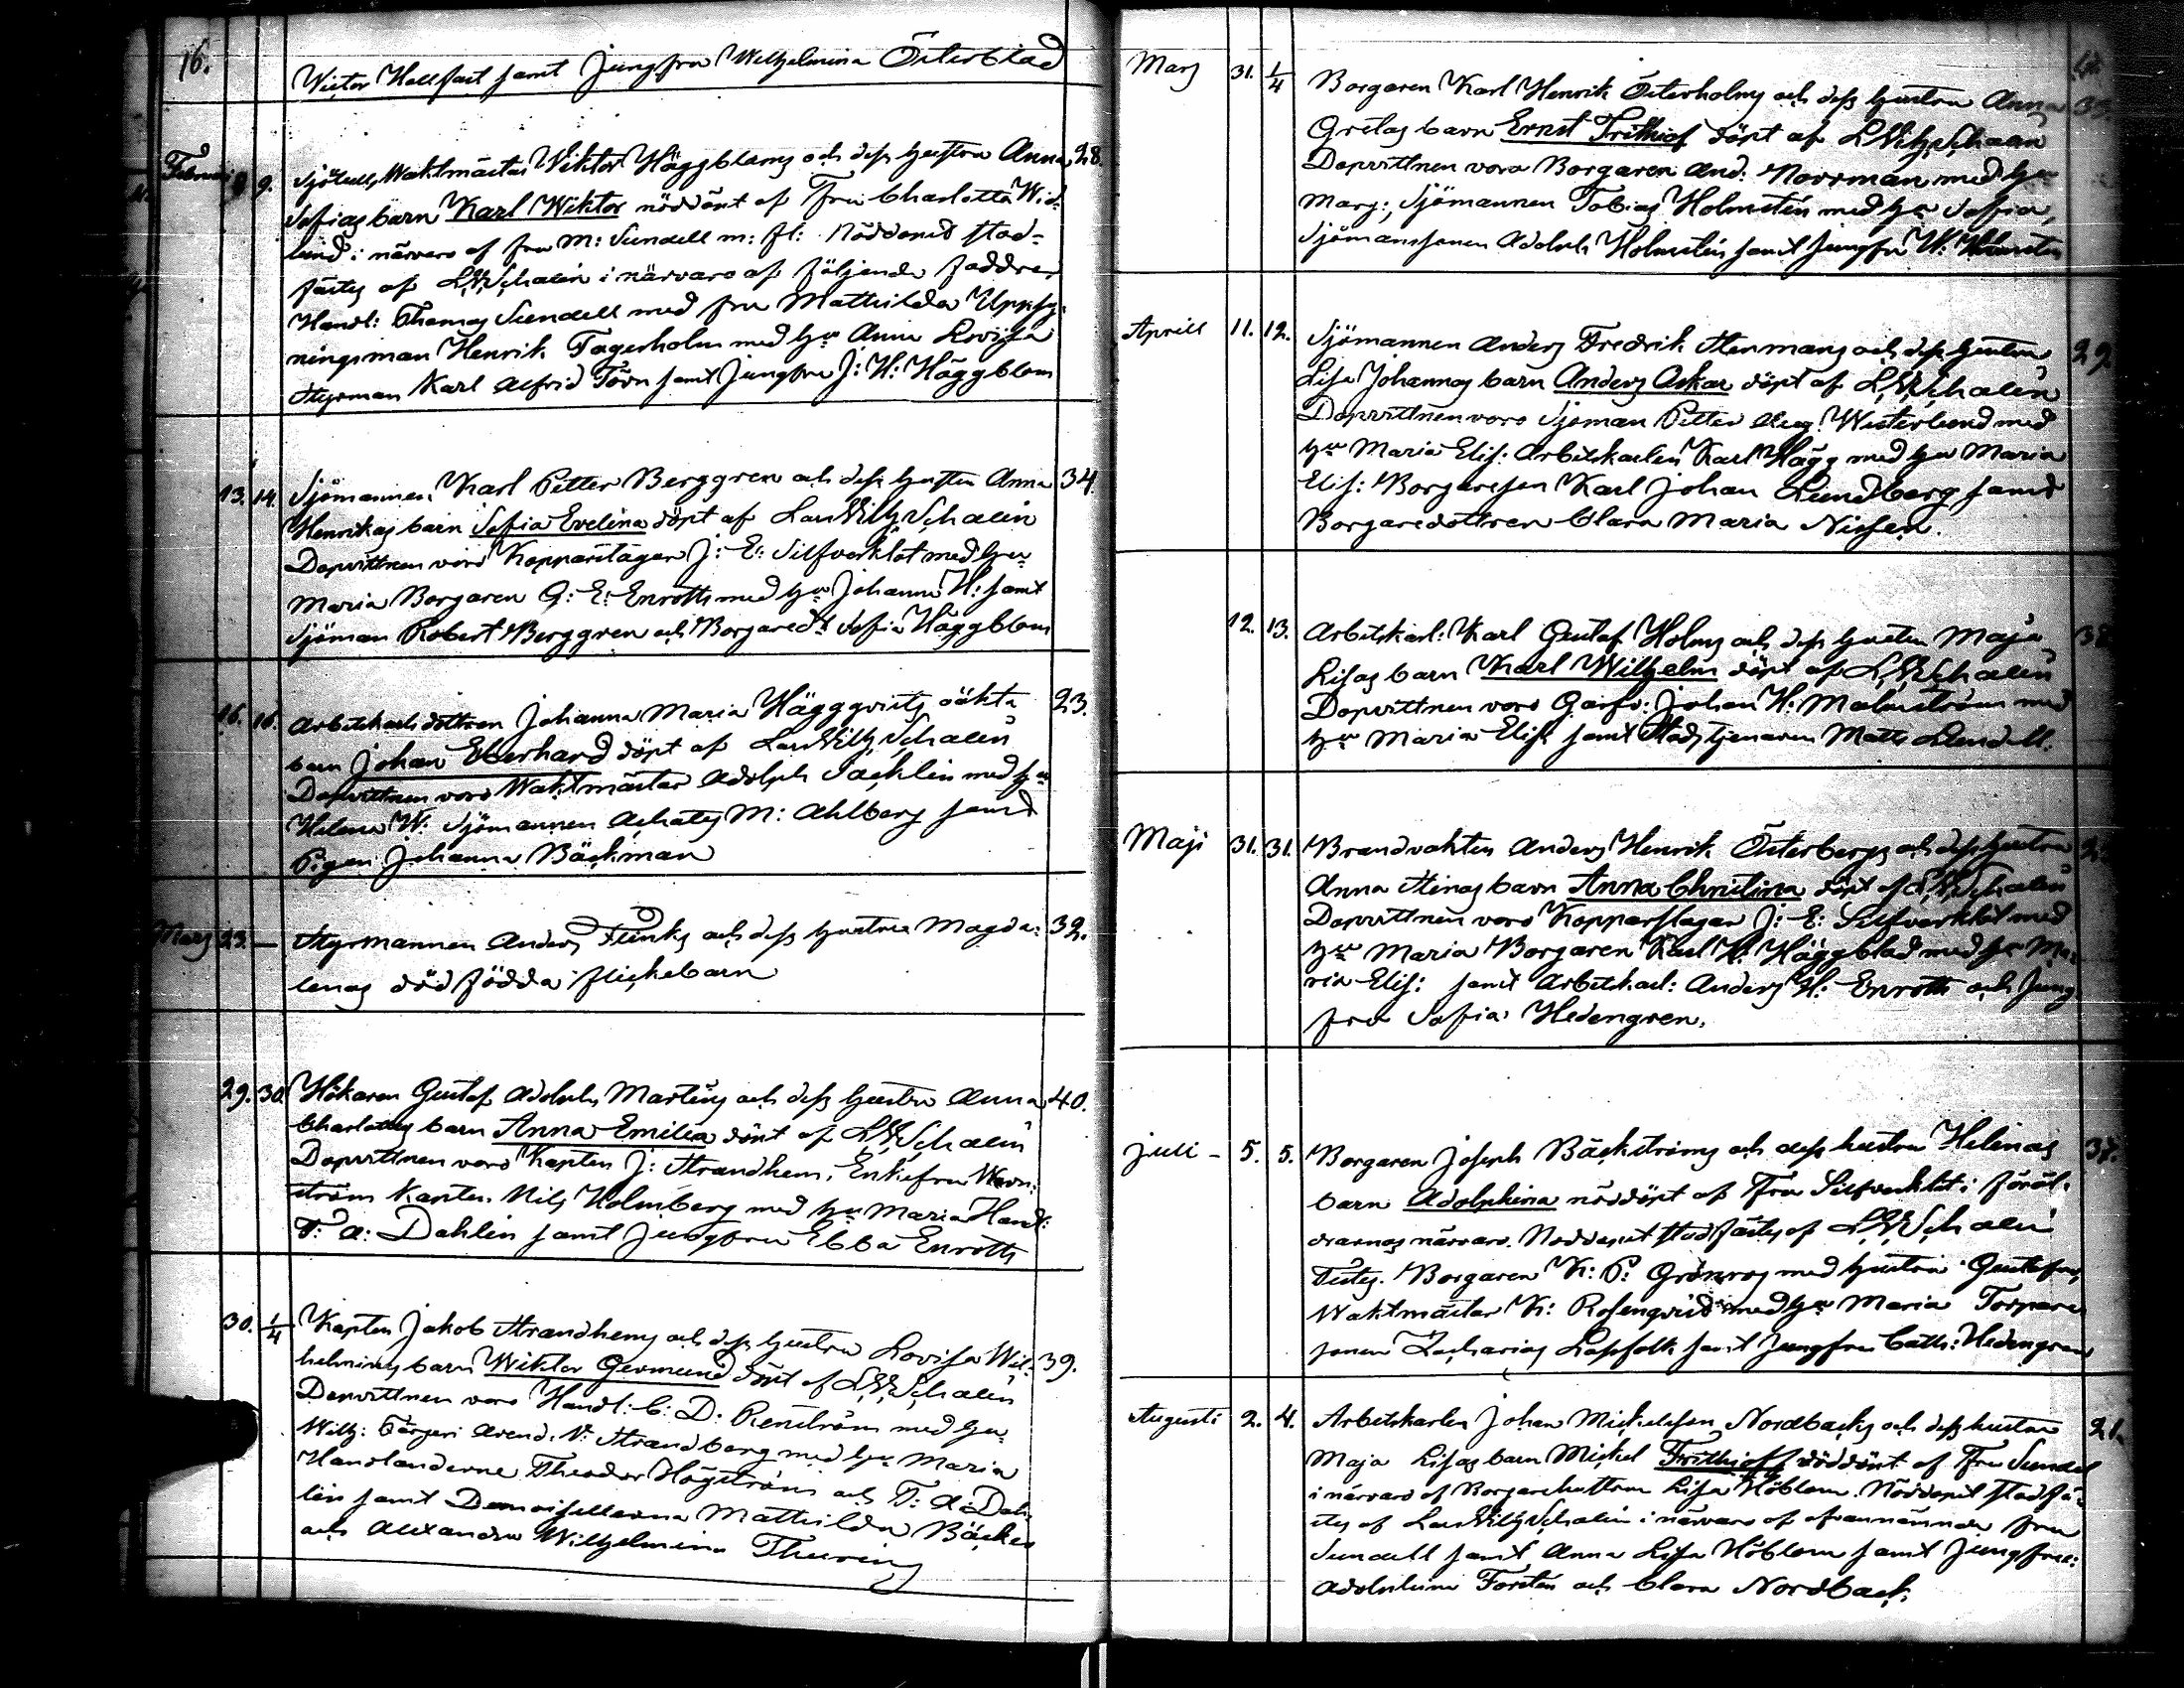 16.
Wictor Hallfast samt Jungfru Wilhelmina Österblad
Februari 9. 9. Sjötull Waktmästar Viktor Häggbloms och dess hustru Anna 28.
Sofias barn Karl Wiktor nöddöpt af Fru Charlotta Wid-
lund i närvaro af fru M: Sundell m: fl: Nöddopet stad-
fästes af L W Schalin i närvaro af följande faddrar
Handl: Thomas Sundell med fru Mathilda Uppsy-
ningsman Henrik Fagerholm med hu Anna Lovisa
Styrman Karl Alfrid Törn samt Jungfru J: H: Häggblom
13. 14. Sjömannen Karl Petter Berggren och dess hustru Anna 34.
Henrikas barn Sofia Evelina döpt af Lars Wilh Schalin
Dopvittnen voro Kopparslagar J: E: Silfverklot med hu
Maria Borgaren G: E: Enroth med hu Johanna H: samt
Sjöman Robert Berggren och Borgaredr Sofia Häggblom
16. 16. Arbetskarlsdottren Johanna Maria Häggqvists oäkta 23.
barn Johan Eberhard döpt af Lars Wilh Schalin
Dopvittnen voro Waktmästar Adolph Jacklin med hu
Helena W: Sjömannen Achates M: Ahlberg samt
Pigan Johanna Bäckman
Mars 23. — Styrmannen Anders Flinks och dess hustru Magda- 32.
lenas dödfödda flickebarn
29. 30. Hökaren Gustaf Adolph Martins och dess hustru Anna 40.
Charlottas barn Anna Emilia döpt af L W Schalin
Dopvittnen voro Kapten J: Strandhem, Enkefru
ström Kapten Nils Holmberg med hu Maria Handl:
F: A: Dahlin samt Jungfru Ebba Enroth
30. 1/4 Kapten Jakob Strandhems och dess hustru Lovisa Wil- 39.
helminas barn Wiktor Germund döpt af L W Schalin
Dopvittnen voro Handl: C: D: Renström med hu
Wilh: Färgeri Arend. N: Strandberg med hu Maria
Handlanderne Theodor Högström och F: A: Dah-
lin samt Demoisellerna Mathilda Bäcker
och Alexandra Wilhelmina Thuring
Mars 31. 1/4 Borgaren Karl Henrik Österholms och dess hustru Anna 33.
Gretas barn Ernst Frithiof döpt af L Wilh Schalin
Dopvittnen voro Borgaren And: Norrman med hu
Marg:, Sjömannen Tobias Holmstén med hu Sofia,
Sjömanssonen Adolph Holmstén samt Jungfru W:
Aprill 11. 12. Sjömannen Anders Fredrik Stenmans och dess hustru 29.
Lisa Johannas barn Anders Oskar döpt af L W Schalin
Dopvittnen voro Sjöman Petter Aug: Westerlund med
hu Maria Elis: Arbetskarlen Karl Hägg med hu Maria
Elis: Borgaresson Karl Johan Lundberg samt
Borgaredottren Clara Maria Nissen.
12. 13. Arbetskarl: Karl Gustaf Holms och dess hustru Maja
Lisas barn Karl Wilhelm döpt af L W Schalin
Dopvittnen voro Garfv: Johan H: Malmström med
hu Maria Elis: samt Stadstjenaren Matts Lundell.
Maji 31. 31. Brandvakten Anders Henrik Österbergs och dess hustru
Anna Stinas barn Anna Christina döpt af L W Schalin
Dopvittnen voro Kopparslagar J: E: Silfverklot med
hu Maria Borgaren Karl H: Häggblad med hu Ma-
ria Elis: samt Arbetskarl: Anders H: Enroth och Jung-
fru Sofia Hedengren.
Juli — 5. 5. Borgaren Joseph Bäckströms och dess hustru Helenas 37.
barn Adolphina nöddöpt af Fru Silfverklot i föräl-
drarnas närvaro. Nöddopet stadfästes af L W Schalin
Testes. Borgaren K: P: Grönroos med hustru Gustafva,
Waktmästar K: Rosenqvist med hu Maria Torpare
sonen Zacharias Lassfolk samt Jungfru Cath: Hedengren
Augusti 2. 4. Arbetskarlen Johan Mickelsson Nordbacks och dess hustru 21.
Maja Lisas barn Mickel Frithioff nöddöpt af Fru Sundel
i närvaro af Borgarehustrun Lisa Höblom. Nöddopet stadfä-
stes af Lars Wilh Schalin i närvaro af ofvannämnda fru
Sundell samt Anna Lisa Höblom samt Jungfru:
Adolphina Forstén och Clara Nordback.